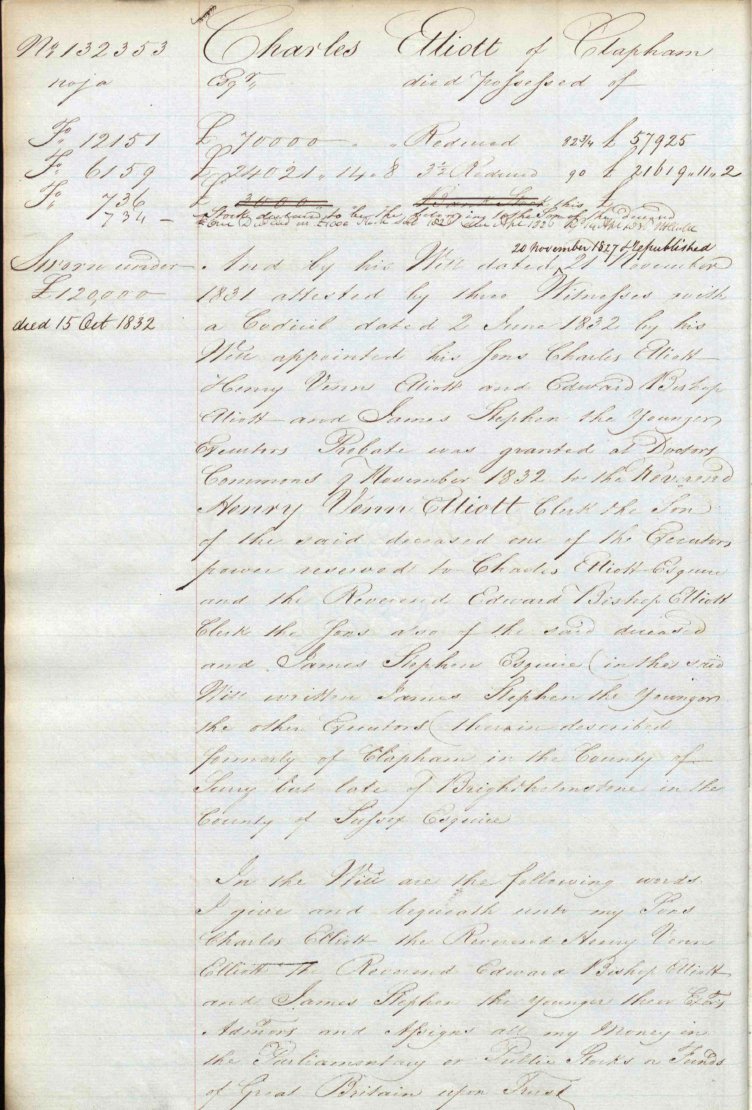 No 132353 Charles Elliott of Clapham
Esqr died possessed of
Fo 12151 £ 70000 - Reduced 82 3/4 £ 57925
Fo 6159 £ 24021,, 14,, 8 3½ Reduced 90 £ 21619,, 11,, 2
Fo 736 £ 3000 Bank Stock £
734 - Stock declared to be the belonging to the Son of the deceased
20 November 1827 & republished
Sworn under And by his Will dated 21 November
£120,000 1831 attested by three Witnesses with
died 15 Oct 1832 a Codicil dated 2 June 1832 by his
Will appointed his Sons Charles Elliott
Henry Venn Elliott and Edward Bishop
Elliott and James Stephen the Younger
Executors Probate was granted at Doctors
Commons 9 November 1832 to the Reverend
Henry Venn Elliott Clerk the Son
of the said deceased one of the Executors
power reserved to Charles Elliott Esquire
and the Reverend Edward Bishop Elliott
Clerk the Sons also of the said deceased
and James Stephen Esquire (in the said
Will written James Stephen the Younger
the other Executors (therein described
formerly of Clapham in the County of
Surry but late of Brighthelmstone in the
County of Sussex Esquire
In the Will are the following words
I give and bequeath unto my Sons
Charles Elliott the Reverend Henry Venn
Elliott the Reverend Edward Bishop Elliott
and James Stephen the younger their Exors
Admors and Assigns all my Money in
the Parliamentary or Public Stocks or Funds
of Great Britain upon Trust